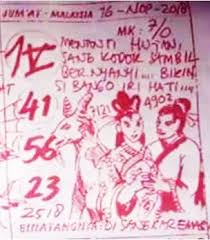 JUM'AT - MALAYSIA 16-NOP-2018
MK: 7/0
1V
MENANTI HUJAN,
SANG KODOK SAMBIL
BERNYANYI... BIKIN
SI BANGO IRI HATI...!
41
7121
4902
56
23
2518
BINATANGNYA: DI SANGKAR EMAS